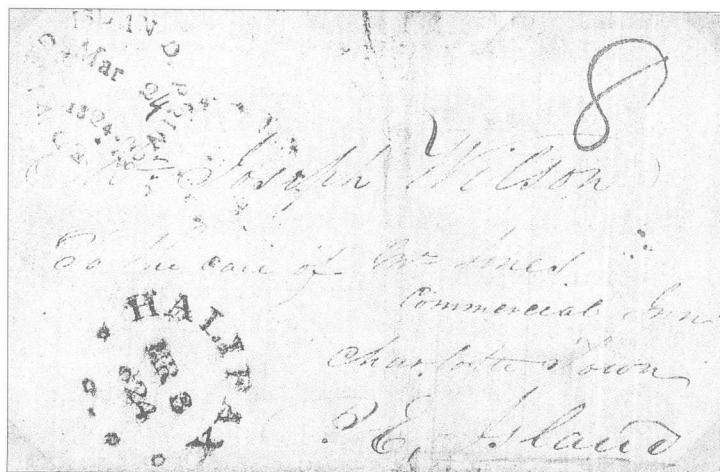 ISLAND
Mar 24
1824
8
Mr Joseph Wilson
To the care of Mrs
Commercial Inn
Charlotte Town
P. E, Island
HALIFAX